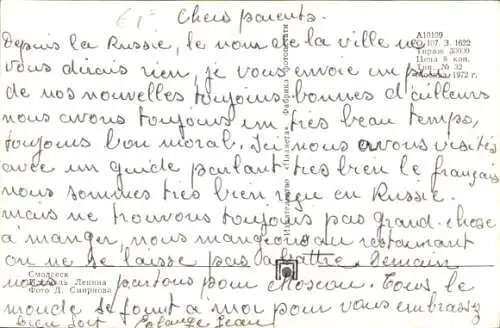 Chers parents.
Depuis la Russie, le nom de la ville ne
vous dirais rien, je vous envoie un peu
de nos nouvelles toujours bonnes d'ailleurs
nous avons toujours un très beau temps,
toujours bon moral. Ici nous avons visités
avec un guide parlant très bien le français
nous sommes très bien reçu en Russie.
mais ne trouvons toujours pas grand-chose
à manger, nous mangeons au restaurant
on ne se laisse pas abattre. Demain
nous partons pour Moscou. Tous le
monde se joint à moi pour vous embrasser
bien fort Jean
А10109
107. З. 1622
Тираж 50000
Цена 8 коп.
Тип. № 32
Москва 1972 г.
Издательство «Планета» Фабрика фотопечати
Смоленск
Ленина
Фото Д. Смирнова